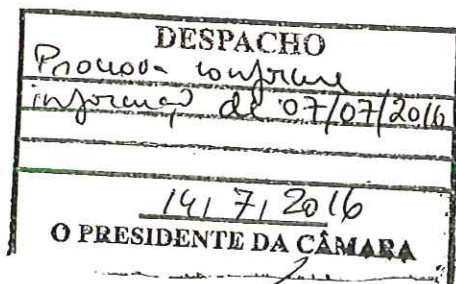 DESPACHO
Promova conforme
informação de 07/07/2016
14/7/2016
O PRESIDENTE DA CÂMARA